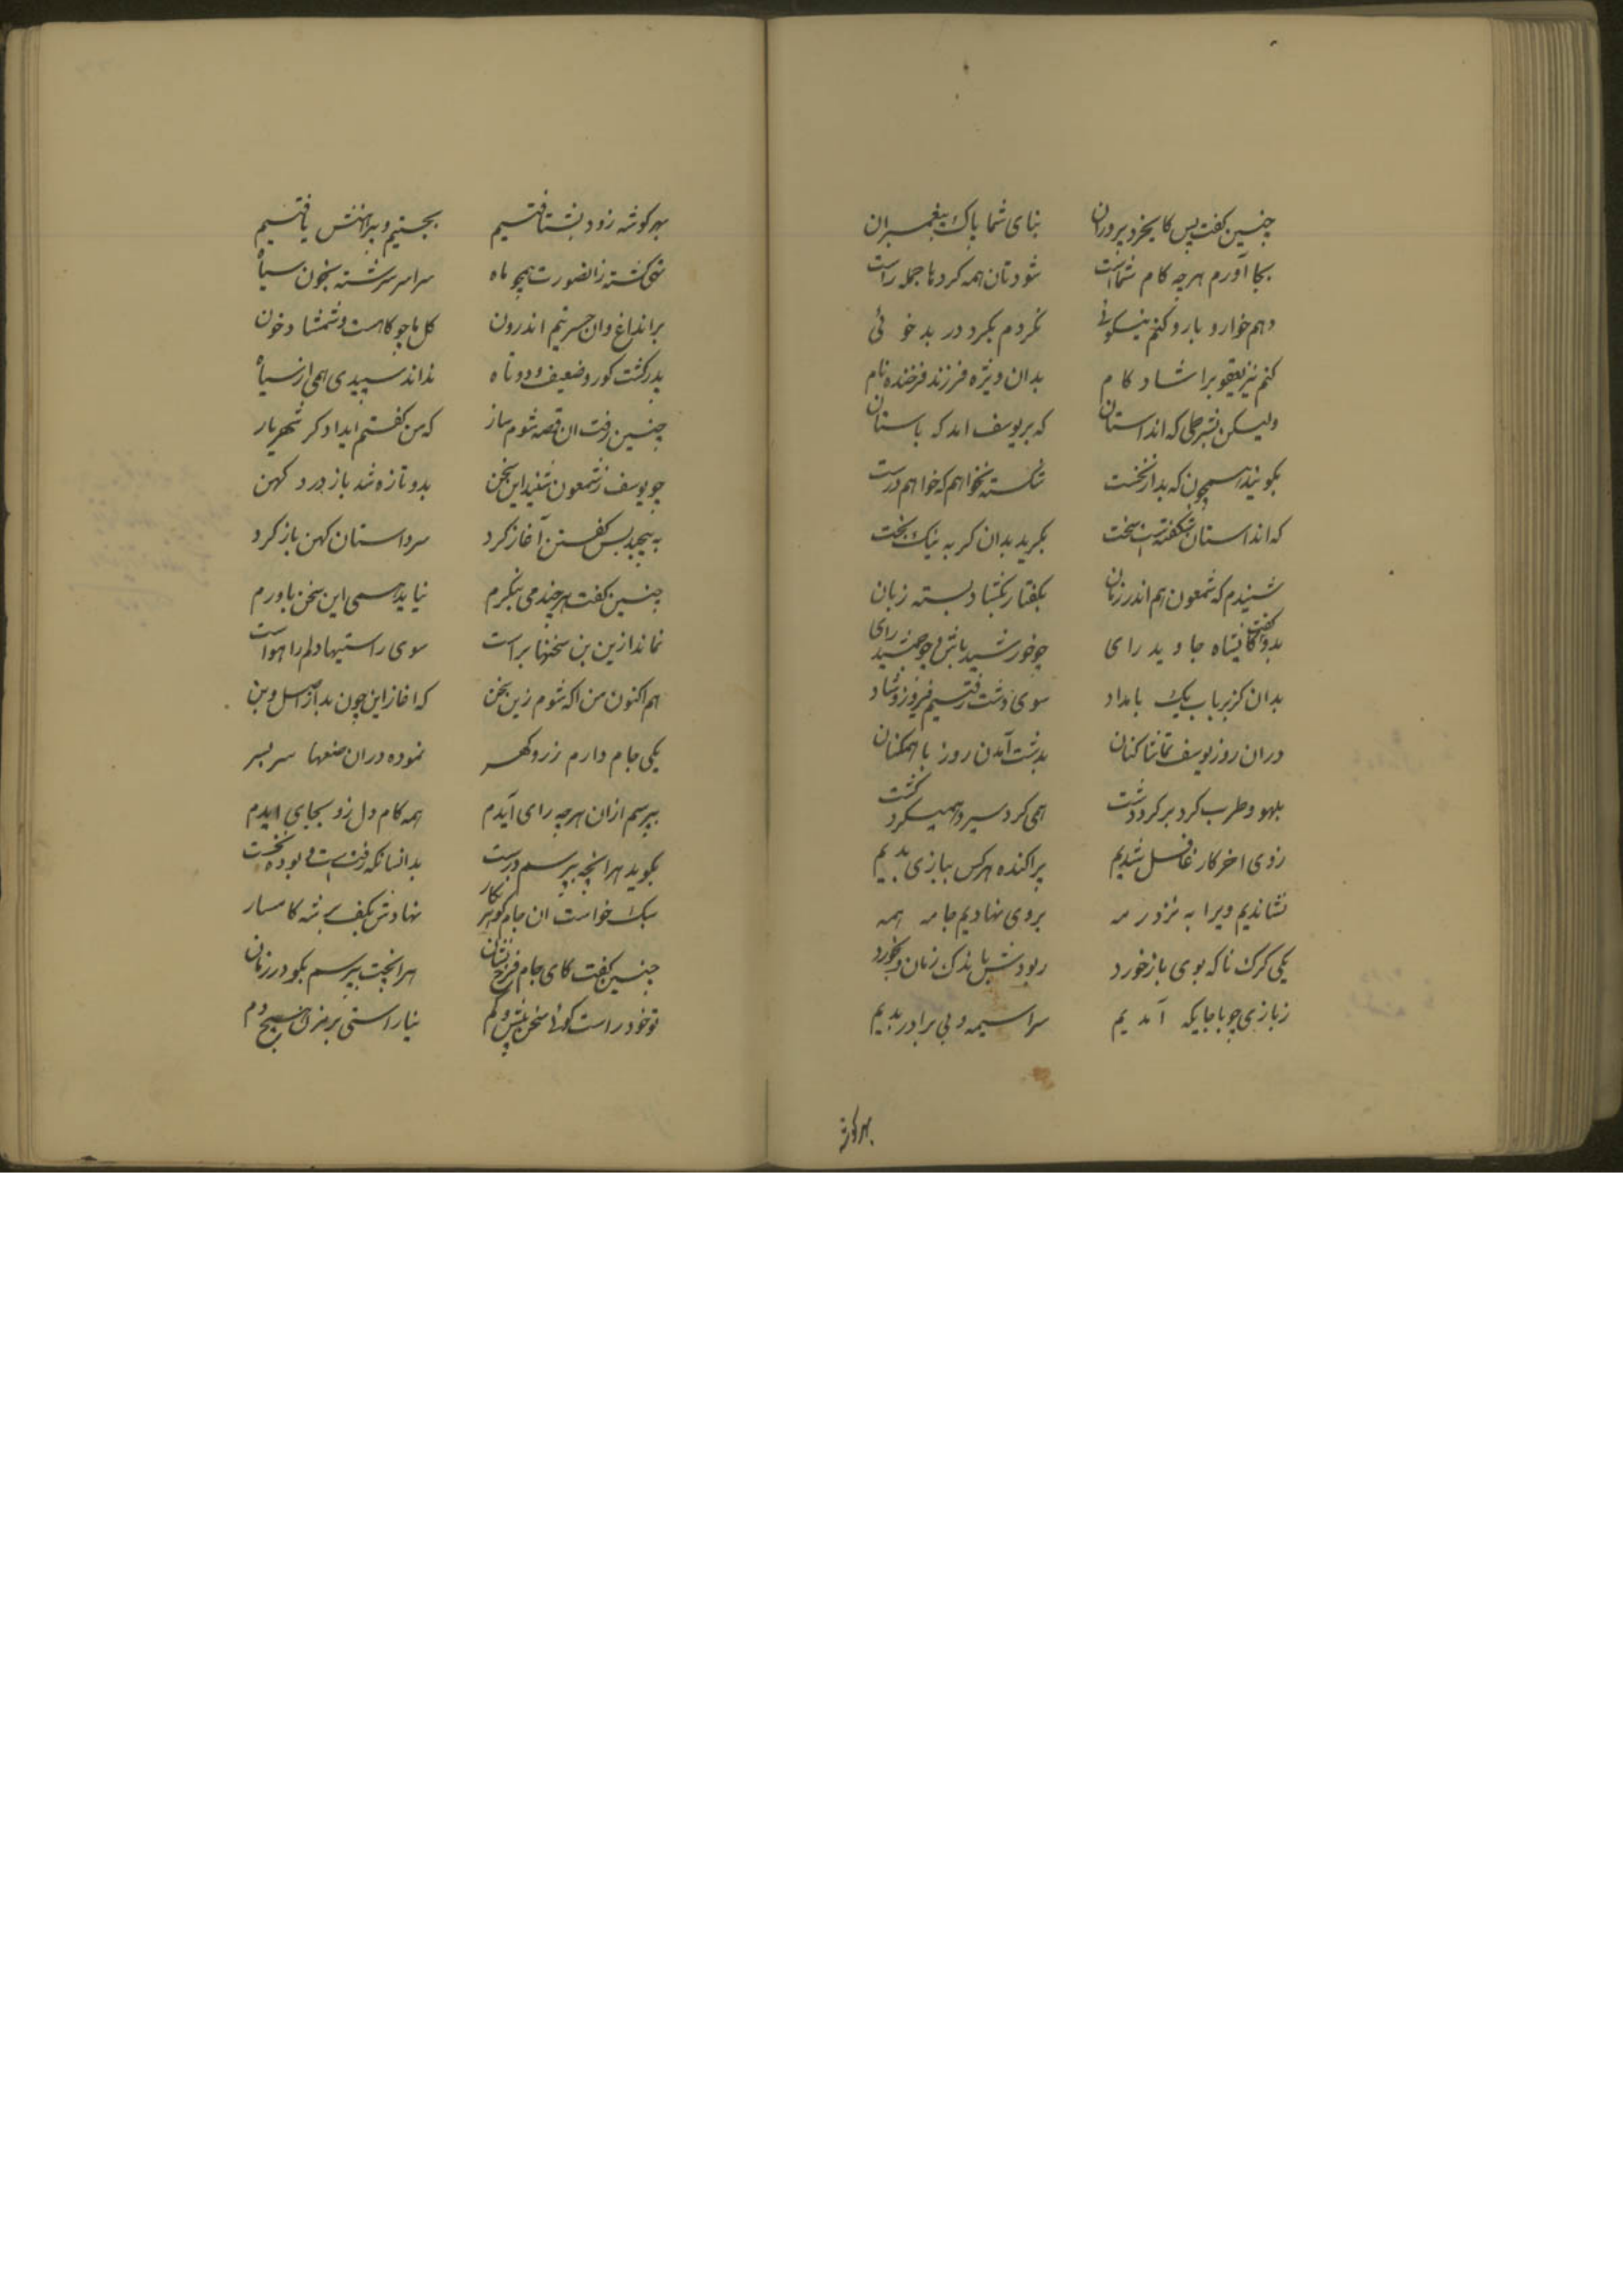 چنین گفت پس کای خرد پروران بنای شما پاک پیغمبران
بجا آورم هرچه کام شماست شودتان همه کردها جمله راست
دهم خوار و بار و کنم نیکوئی نکردم بکرد در بد خوئی
کنم نیز یعقوبرا شاد کام بدان ویژه فرزند فرخنده نام
ولیکن بشرطی که انداستان که بر یوسف امد که باستان
بکوئید همچون که بد از نخست شکسته نخواهم که خواهم درست
که انداستان شکفتست سخت بکرید بدان کریه نیک بخت
شنیدم که شمعون هم اندر زمان بکفتار بکشاد بسته زبان
بدو گفت کایشاه جاوید رای چو خورشید باش و چو جمشید رای
بدان کز بر باب یک بامداد سوی دشت رفتیم فیروز و شاد
دران روز یوسف تماشا کنان بدشت آمدن روز با همکنان
بلهو و طرب کرد بر کرد دشت همی کرد سیر و همیکرد کشت
زوی اخر کار غافل شدیم پراکنده هرکس ببازی بدیم
نشاندیم ویرا به نزد رمه بروی نهادیم جامه همه
یکی کرک ناکه بوی بازخورد ربودش باندک زمان و بخورد
زبازی چو باجایکه آمدیم سراسیمه و بی برادر بدیم
بهر کوشه
بهر کوشه زود بشتافتیم بجستیم و پیراهنش یافتیم
تهی کشته زانصورت همچو ماه سراسر سرشته بخون سیاه
بر انداغ و ان حسرتیم اندرون کل ما چو کاهست و شمشاد خون
پدر کشت کور و ضعیف و دوتاه نداند سپیدی همی از سیاه
چنین رفت ان قصه شوم ساز که من کفتم ایدادکر شهریار
چو یوسف ز شمعون شنید این سخن بدو تازه شد باز درد کهن
به پیچید پس کفتن آغاز کرد سر داستان کهن باز کرد
چنین کفت هر چند می بنکرم نیاید همی این سخن باورم
نماند ازین بن سخنها براست سوی راستیها دلم را هواست
هم اکنون من اکه شوم زین سخن که اغاز این چون بد از اصل و بن
یکی جام دارم زر و کهر نموده دران صنعها سربسر
بپرسم ازان هرچه رای آیدم همه کام دل زو بجای ایدم
بکوید هرانچه بپرسم درست بدانسانکه رفتست و بوده نخست
سبک خواست ان جام کوهر نکار نهادش بکف بر شه کامسار
چنین کفت کای جام فرخ نشان هرانچت بپرسم بکو در زمان
تو خود راست کوئی سخن بیش و کم نیاراستی بر مزن هیچ دم